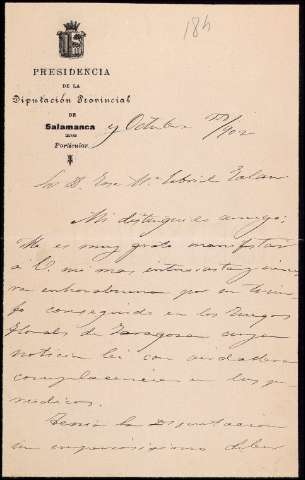 184
PRESIDENCIA
DE LA
Diputación Provincial
DE
Salamanca
Particular
y Octubre 1902
Sr D. Jose Mª Gabriel Galan
Mi distinguido amigo:
Me es muy grato manifestar
a V. mi mas entusiasta y since
ra enhorabuena por su triun
fo conseguido en los Juegos
florales de Zaragoza cuya
noticia lei con verdadera
complacencia en los pe
riodicos.
Tenia la Diputacion
un imperiosisimo deber